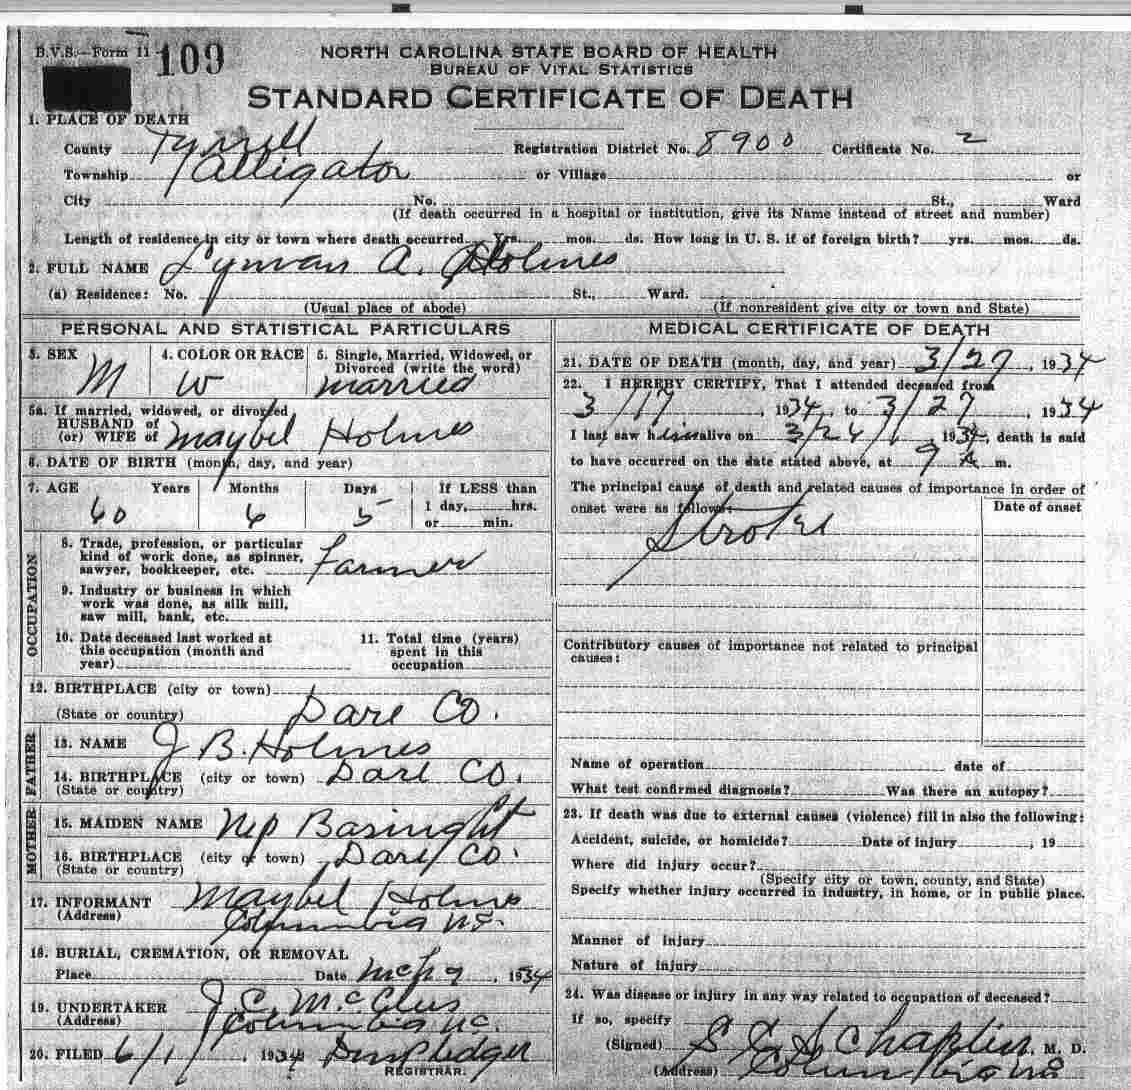 B.V.S.—Form 11 109
NORTH CAROLINA STATE BOARD OF HEALTH
BUREAU OF VITAL STATISTICS
STANDARD CERTIFICATE OF DEATH
1. PLACE OF DEATH
County Tyrrell Registration District No. 8900 Certificate No. 2
Township Alligator or Village or
City No. St., Ward
(If death occurred in a hospital or institution, give its Name instead of street and number)
Length of residence in city or town where death occurred Yrs. mos. ds. How long in U. S. if of foreign birth? yrs. mos. ds.
2. FULL NAME Lyman A. Holmes
(a) Residence: No. St., Ward.
(Usual place of abode) (If nonresident give city or town and State)
PERSONAL AND STATISTICAL PARTICULARS
3. SEX 4. COLOR OR RACE 5. Single, Married, Widowed, or
Divorced (write the word)
M W married
5a. If married, widowed, or divorced
HUSBAND of
(or) WIFE of Maybel Holmes
6. DATE OF BIRTH (month, day, and year)
7. AGE Years Months Days If LESS than
60 6 5 1 day, hrs.
or min.
OCCUPATION
8. Trade, profession, or particular
kind of work done, as spinner,
sawyer, bookkeeper, etc. Farmer
9. Industry or business in which
work was done, as silk mill,
saw mill, bank, etc.
10. Date deceased last worked at
this occupation (month and
year)
11. Total time (years)
spent in this
occupation
12. BIRTHPLACE (city or town)
(State or country) Dare Co.
FATHER
13. NAME J B. Holmes
14. BIRTHPLACE (city or town) Dare Co.
(State or country)
MOTHER
15. MAIDEN NAME Nep Basinght
16. BIRTHPLACE (city or town) Dare Co.
(State or country)
17. INFORMANT Maybel Holmes
(Address) Columbia N.C.
18. BURIAL, CREMATION, OR REMOVAL
Place Date 1934
19. UNDERTAKER J. C. McClees
(Address) Columbia N.C.
20. FILED 6/1, 1934
REGISTRAR.
MEDICAL CERTIFICATE OF DEATH
21. DATE OF DEATH (month, day, and year) 3/27, 1934
22. I HEREBY CERTIFY, That I attended deceased from
3/17, 1934, to 3/27, 1934
I last saw him alive on 3/26, 1934, death is said
to have occurred on the date stated above, at 9 A m.
The principal cause of death and related causes of importance in order of
onset were as follows: Date of onset
Stroke
Contributory causes of importance not related to principal
causes:
Name of operation date of
What test confirmed diagnosis? Was there an autopsy?
23. If death was due to external causes (violence) fill in also the following:
Accident, suicide, or homicide? Date of injury , 19
Where did injury occur?
(Specify city or town, county, and State)
Specify whether injury occurred in industry, in home, or in public place.
Manner of injury
Nature of injury
24. Was disease or injury in any way related to occupation of deceased?
If so, specify
(Signed) Chaplin, M. D.
(Address) Columbia N.C.